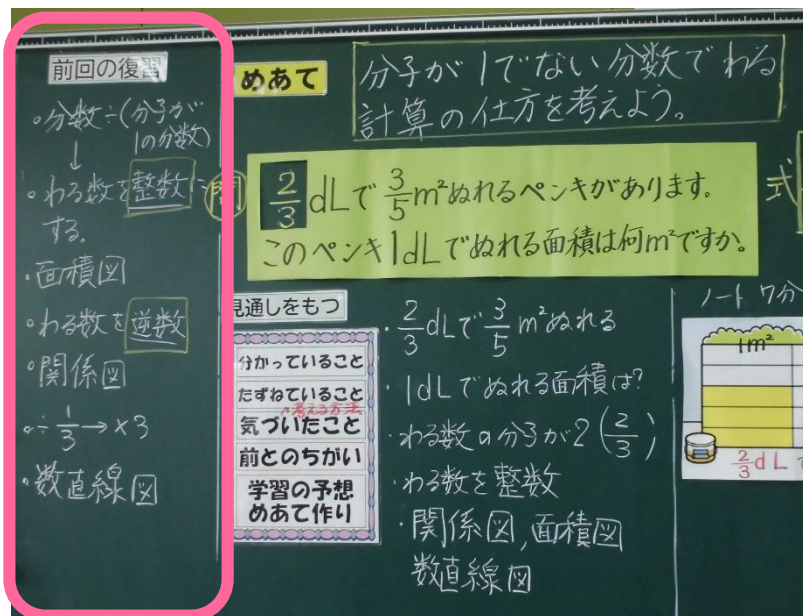 前回の復習
・分数÷(分子が
1の分数)
↓
・わる数を整数に
する。
・面積図
・わる数を逆数
・関係図
・÷1/3→×3
・数直線図
めあて
分子が1でない分数でわる
計算の仕方を考えよう。
問
2/3dLで3/5m²ぬれるペンキがあります。
このペンキ1dLでぬれる面積は何m²ですか。
式
見通しをもつ
分かっていること
たずねていること
考える方法
気づいたこと
前とのちがい
学習の予想
めあて作り
・2/3dLで3/5m²ぬれる
・1dLでぬれる面積は?
・わる数の分子が2(2/3)
・わる数を整数
・関係図,面積図
数直線図
ノート7分
1m²
2/3dL